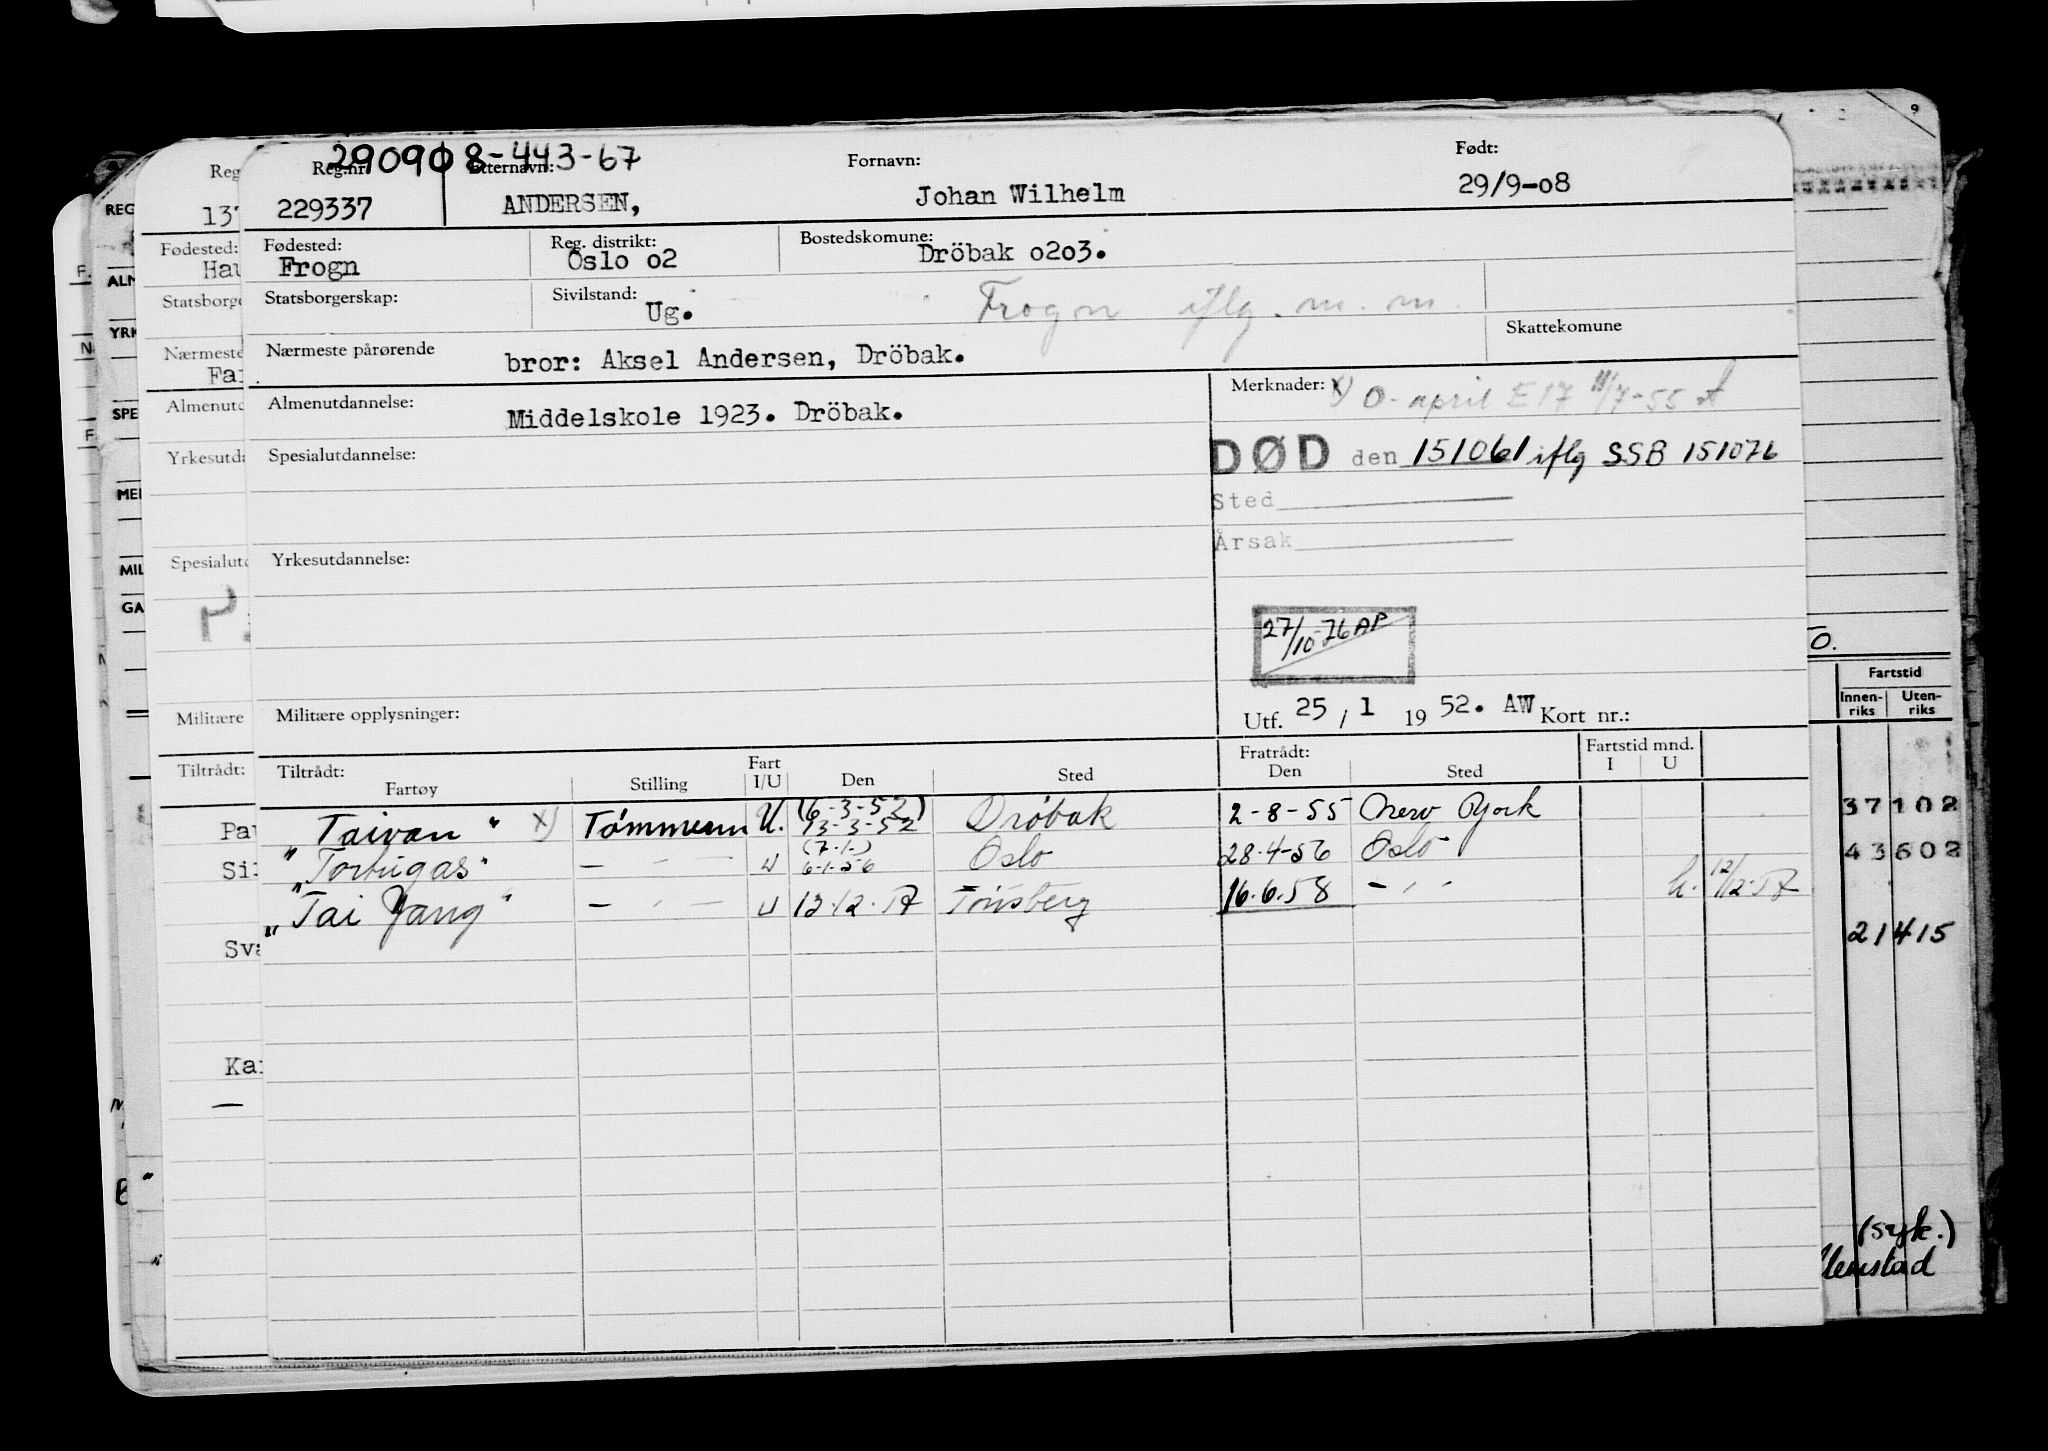 290908-443-67
Reg.nr. Etternavn: Fornavn: Født:
229337 ANDERSEN, Johan Wilhelm 29/9-08
Fødested: Reg. distrikt: Bostedskomune:
Frogn Oslo 02 Dröbak 0203.
Statsborgerskap: Sivilstand: Ug. Frogn iflg. m.m.
Skattekomune
Nærmeste pårørende bror: Aksel Andersen, Dröbak.
Almenutdannelse: Middelskole 1923. Dröbak.
Merknader: x) O-april E17 11/7-55
DØD den 151061 iflg SSB 151076
Spesialutdannelse:
Sted
Årsak
Yrkesutdannelse:
27/10-76 AP
Militære opplysninger:
Utf. 25/1 1952. AW Kort nr.:
Tiltrådt: Fart Fratrådt: Fartstid mnd.
Fartøy Stilling I/U Den Sted Den Sted I U
(6-3-52)
"Taivan" x) Tömmerm U. 13-3-52 Dröbak 2-8-55 New York
(7.1.)
"Tortugas" — - — U 6.1.56 Oslo 28-4-56 Oslo
"Tai Yang" — - — U 12.12.57 Tönsberg 16.6.58 - , - h. 12/12.57
Reg
137
Fødested:
Hau
Statsborge
Nærmeste
Far
Almenutd
Yrkesutda
Spesialutd
Militære
Tiltrådt:
Pa
Sil
Sva
Kar
—
REG
ALM
YRK
SPE
MEI
MIL
GA
F.
N
F
9
O.
Fartstid
Innen-riks Uten-riks
37102
43602
21415
(syk.)